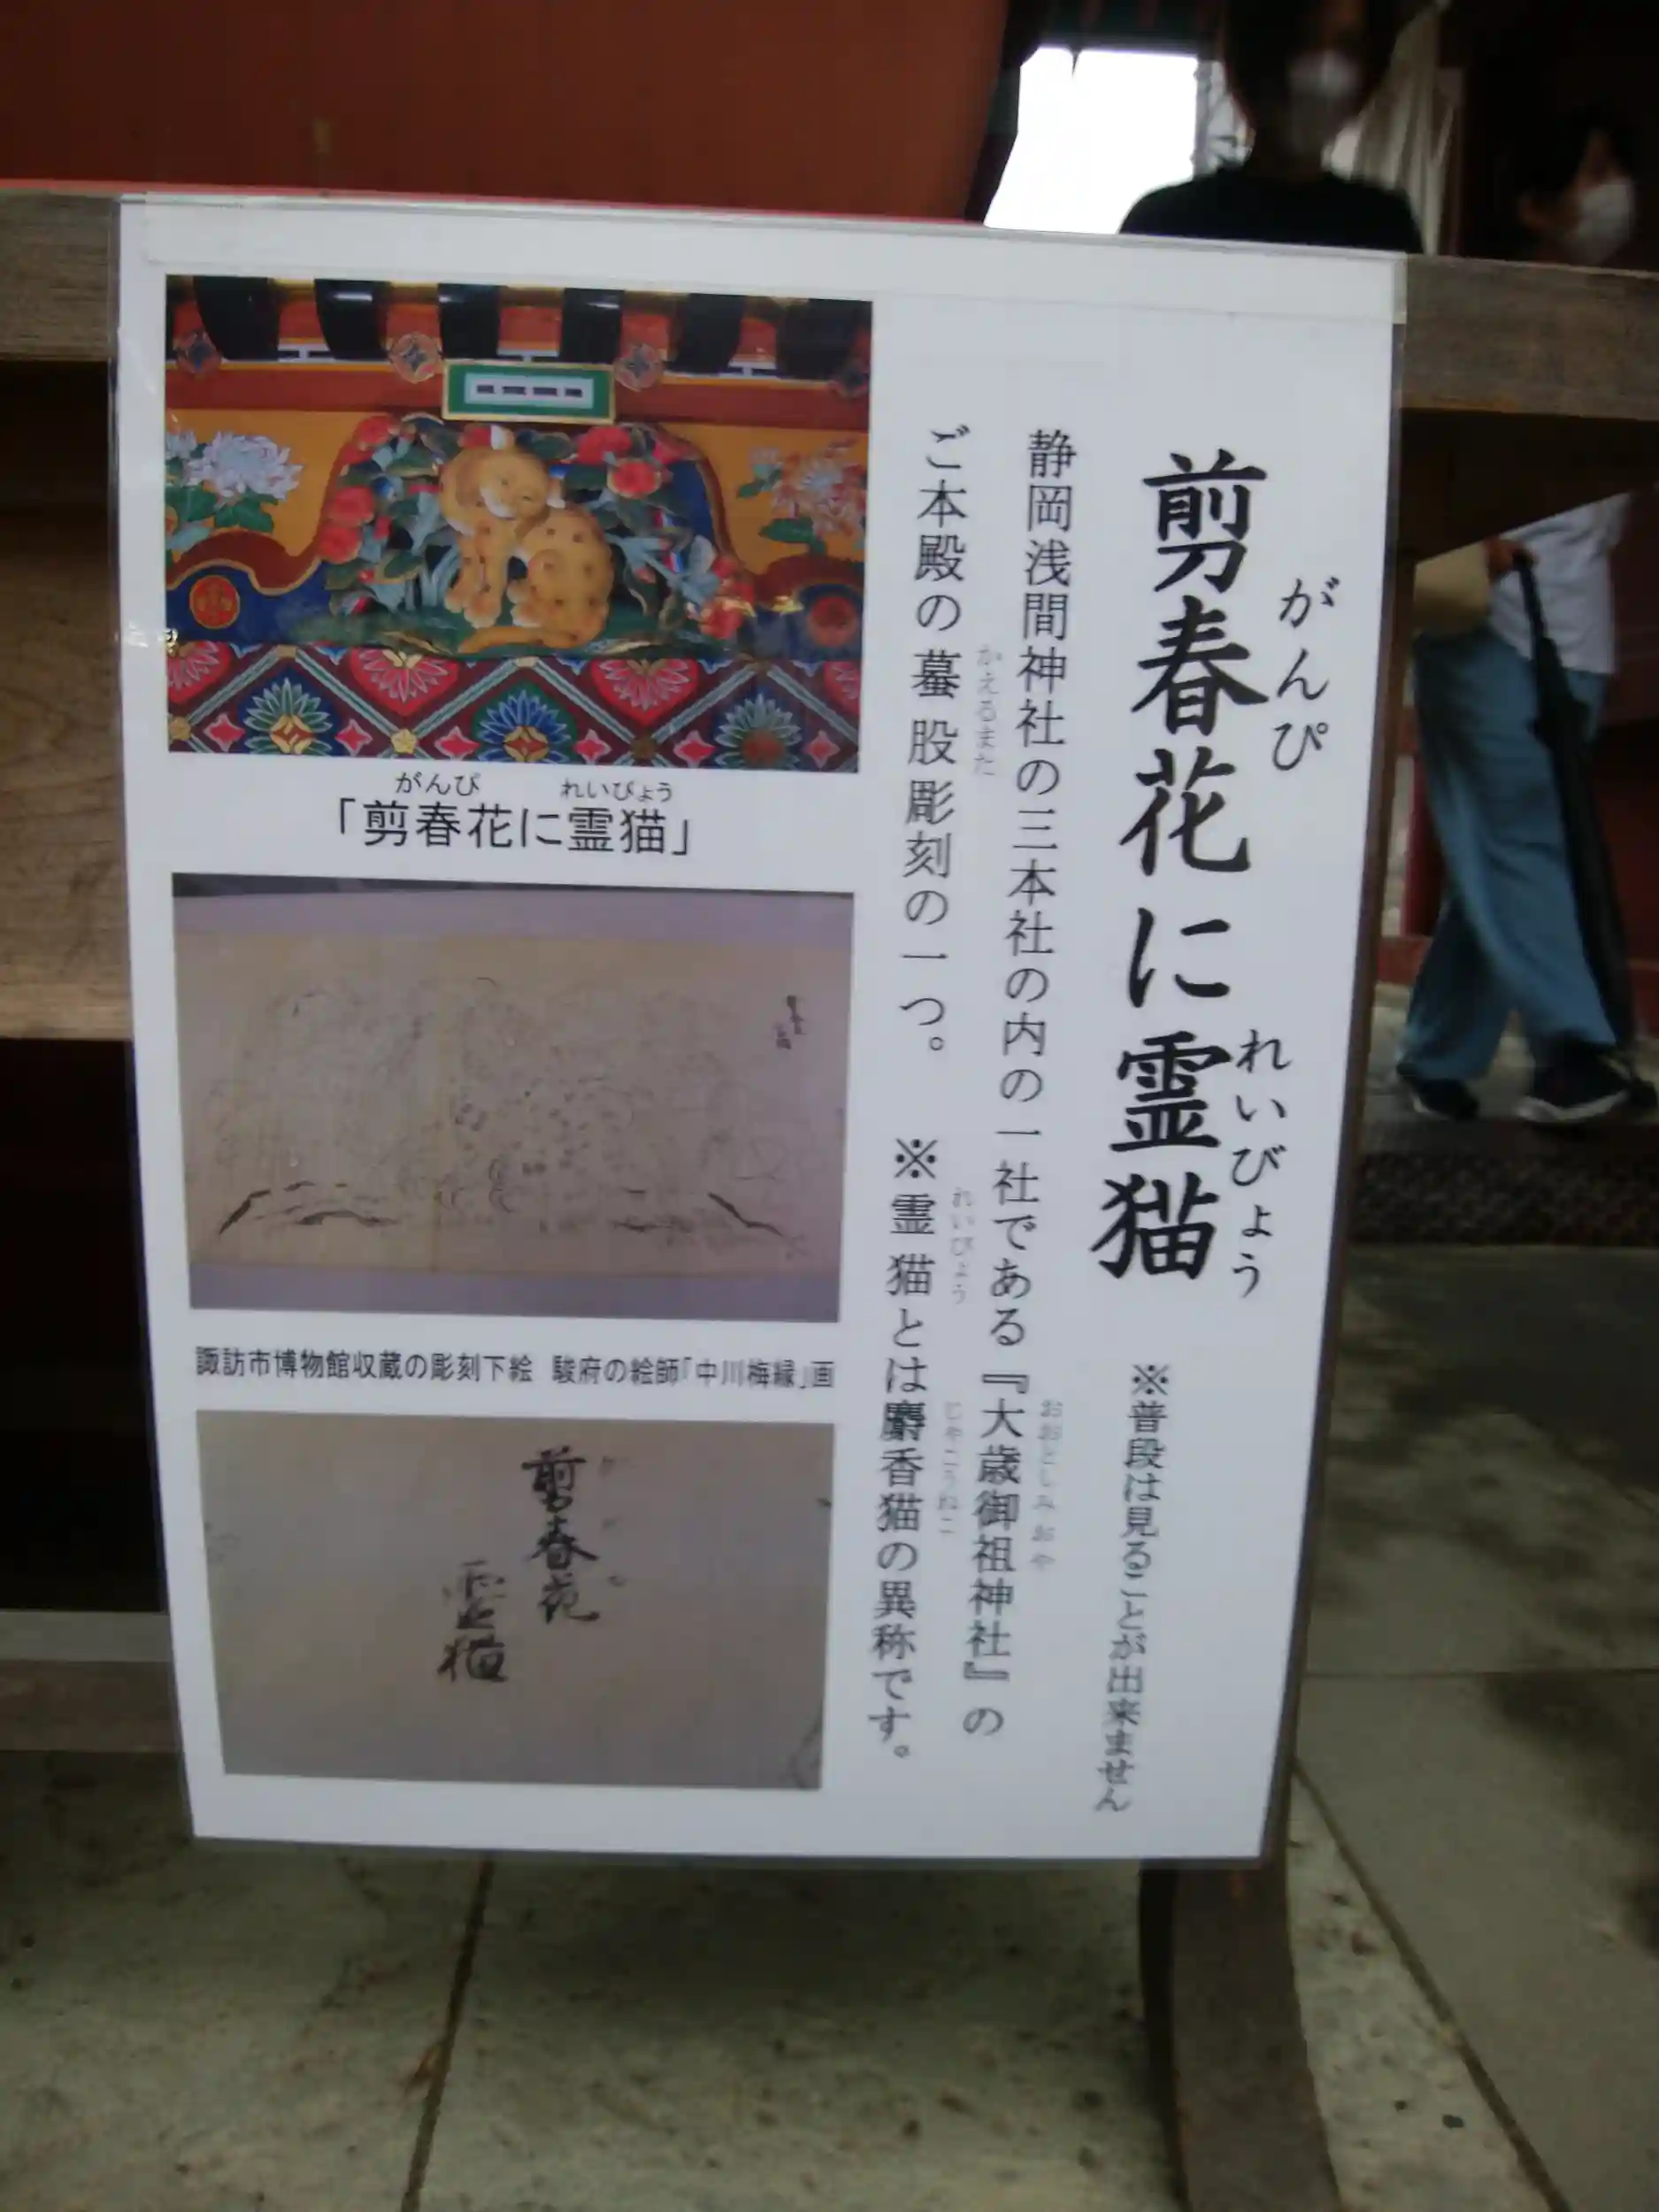 剪春花に霊猫
がんぴ
れいびょう
※普段は見ることが出来ません
静岡浅間神社の三本社の内の一社である『大歳御祖神社』の
おおとしみおや
ご本殿の蟇股彫刻の一つ。 ※霊猫とは麝香猫の異称です。
かえるまた
れいびょう
じゃこうねこ
がんぴ れいびょう
「剪春花に霊猫」
諏訪市博物館収蔵の彫刻下絵 駿府の絵師「中川梅縁」画
剪春花
霊猫